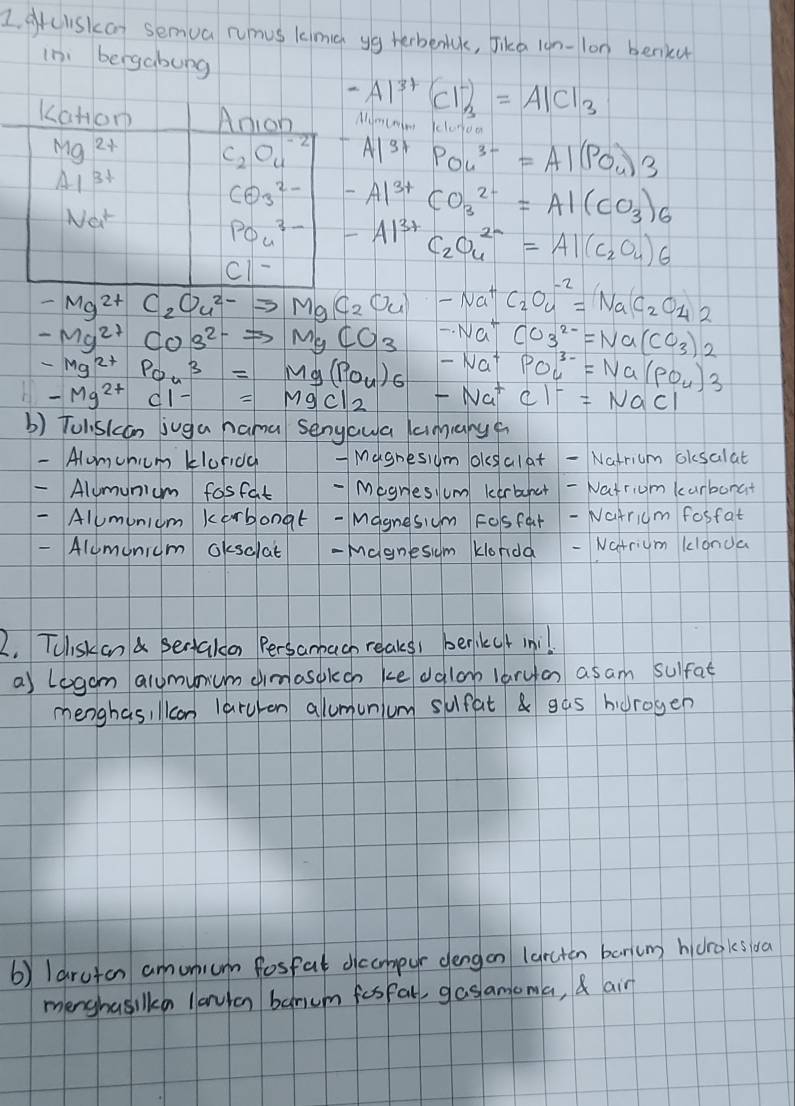 1. a) tuliskan semua rumus kimia yg terbentuk, Jika ion-ion berikut
ini bergabung
Kation | Anion
Mg 2+ | C2O4 -2
Al 3+ | CO3 2-
Na+ | PO4 3-
Cl -
- Al 3+ (Cl-)3 = AlCl3
Aluminium klorida
- Al 3+ PO4 3- = Al(PO4)3
- Al 3+ CO3 2- = Al(CO3)6
- Al 3+ C2O4 2- = Al(C2O4)6
- Mg 2+ C2O4 2- => Mg(C2O4)
- Mg 2+ CO3 2- => MgCO3
- Mg 2+ PO4 3 = Mg(PO4)6
- Mg 2+ Cl- = MgCl2
- Na+ C2O4 -2 = Na(C2O4)2
- Na+ CO3 2- = Na(CO3)2
- Na+ PO4 3- = Na(PO4)3
- Na+ Cl- = NaCl
b) Tuliskan juga nama senyawa kimianya
- Alumunium klorida
- Alumunium fosfat
- Alumunium karbonat
- Alumunium oksalat
- Magnesium oksalat
- Magnesium karbonat
- Magnesium Fosfat
- Magnesium klorida
- Natrium oksalat
- Natrium karbonat
- Natrium fosfat
- Natrium klorida
2. Tuliskan & sertakan Persamaan reaksi berikut ini!
a) Logam alumunium dimasukan ke dalam larutan asam sulfat
menghasilkan larutan alumunium sulfat & gas hidrogen
b) larutan amunium fosfat dicampur dengan larutan barium hidroksida
menghasilkan larutan barium fosfat, gas amonia, & air